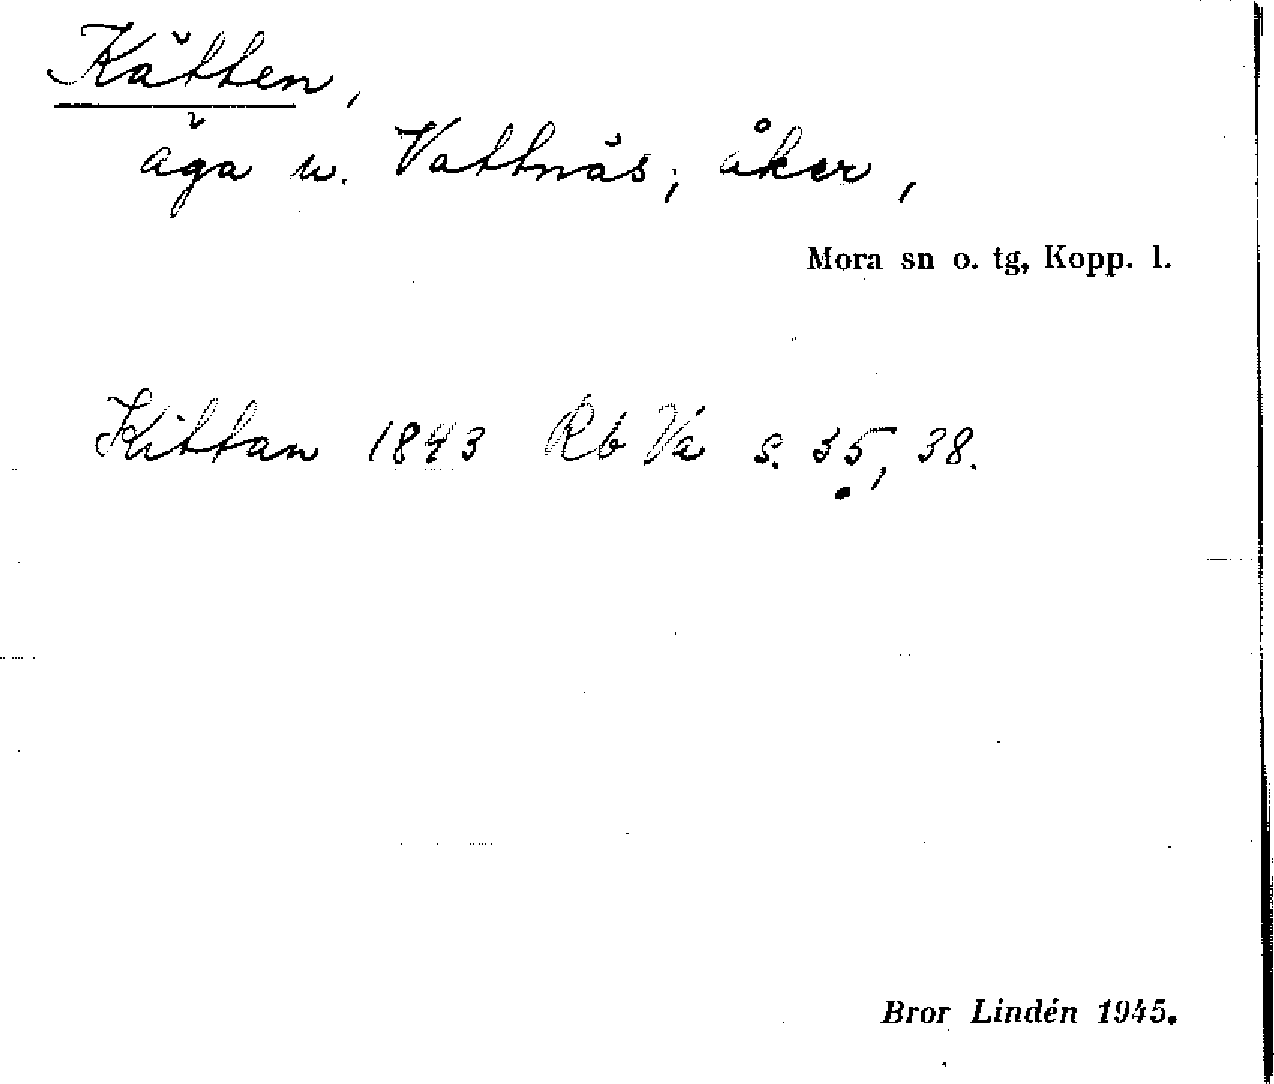 Kätten,
äga u. Vattnäs; åker,
Mora sn o. tg, Kopp. l.
Kittan 1843 Rb Vä s. 35, 38.
Bror Lindén 1945.